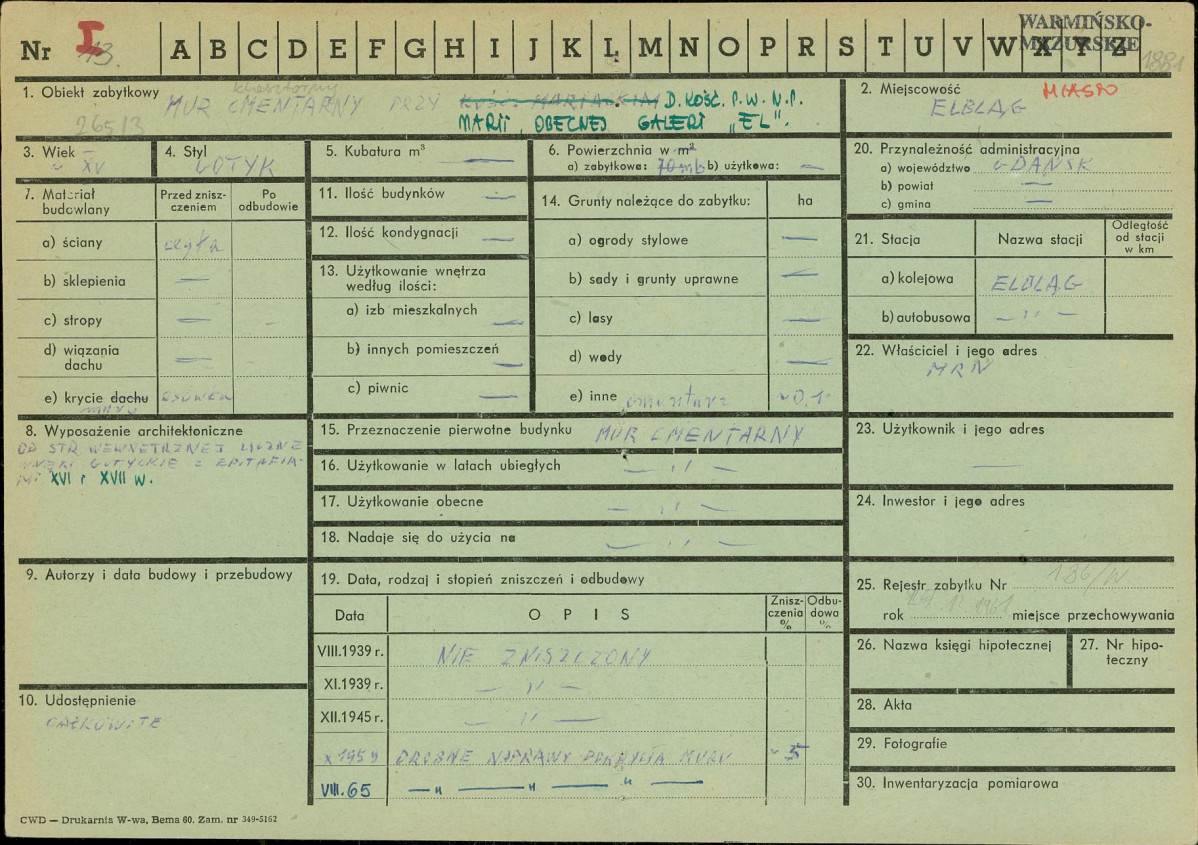 WARMIŃSKO-
MAZURSKIE
Nr I 13. A B C D E F G H I J K L M N O P R S T U V W X Y Z 1881
1. Obiekt zabytkowy klasztorny
MUR CMENTARNY PRZY KOŚC. MARIACKIM D. KOŚC. P.W. N.P.
265/3 MARII, OBECNEJ GALERI „EL".
2. Miejscowość MIASTO
ELBLĄG
3. Wiek
~ XV
4. Styl
GOTYK
5. Kubatura m³ —
6. Powierzchnia w m²
a) zabytkowa: 70 mb b) użytkowa: —
20. Przynależność administracyjna
a) województwo GDAŃSK
b) powiat —
c) gmina —
7. Materiał budowlany
Przed znisz-
czeniem
Po
odbudowie
a) ściany cegła
b) sklepienia —
c) stropy —
d) wiązania
dachu —
e) krycie dachu
muru
11. Ilość budynków —
12. Ilość kondygnacji —
13. Użytkowanie wnętrza
według ilości:
a) izb mieszkalnych —
b) innych pomieszczeń —
c) piwnic —
14. Grunty należące do zabytku: ha
a) ogrody stylowe —
b) sady i grunty uprawne —
c) lasy —
d) wody —
e) inne cmentarz ~0,1
21. Stacja
Nazwa stacji
Odległość
od stacji
w km
a) kolejowa ELBLĄG
b) autobusowa — " —
22. Właściciel i jego adres
MRN
8. Wyposażenie architektoniczne
OD STR. WEWNĘTRZNEJ LICZNE
WNĘKI GOTYCKIE Z EPITAFIA-
MI XVI i XVII W.
9. Autorzy i data budowy i przebudowy
10. Udostępnienie
CAŁKOWITE
15. Przeznaczenie pierwotne budynku MUR CMENTARNY
16. Użytkowanie w latach ubiegłych — " —
17. Użytkowanie obecne — " —
18. Nadaje się do użycia na — " —
19. Data, rodzaj i stopień zniszczeń i odbudowy
Data
O P I S
Znisz-
czenia
%
Odbu-
dowa
%
VIII.1939 r. NIE ZNISZCZONY
XI.1939 r. — " —
XII.1945 r. — " —
X 1959 DROBNE NAPRAWY POKRYCIA MURU ~ 5
VIII.65 — " — " — " —
23. Użytkownik i jego adres
—
24. Inwestor i jego adres
25. Rejestr zabytku Nr 186/W
rok 1961 miejsce przechowywania
26. Nazwa księgi hipotecznej
27. Nr hipo-
teczny
28. Akta
29. Fotografie
30. Inwentaryzacja pomiarowa
CWD — Drukarnia W-wa, Bema 60. Zam. nr 349-5162